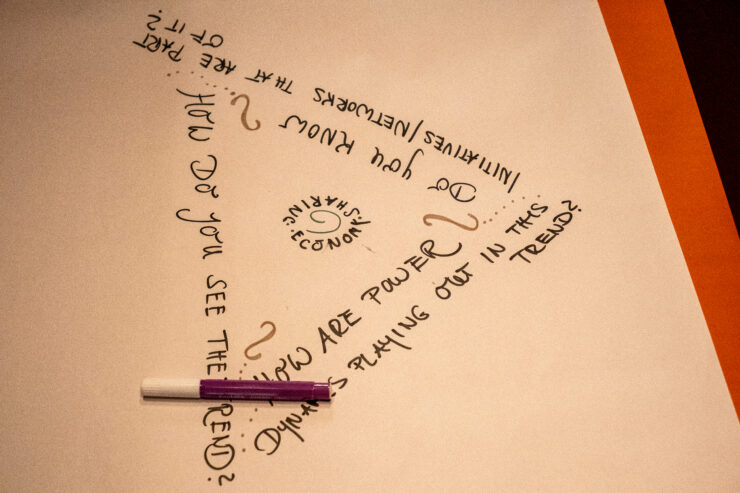 HOW DO YOU SEE THE TREND?
DO YOU KNOW
INITIATIVES/NETWORKS THAT ARE PART
OF IT?
HOW ARE POWER
DYNAMICS PLAYING OUT IN THIS
TREND?
SHARING.ECONOMY.